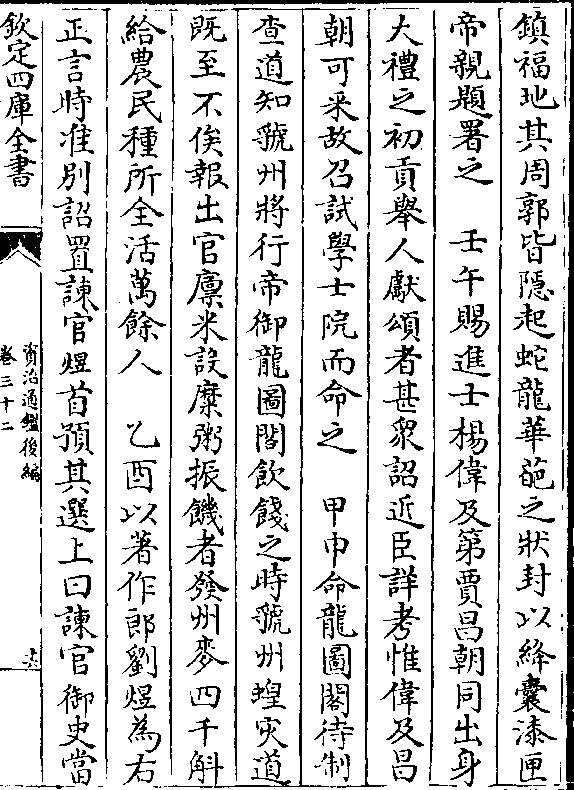 鎮福地其周郭皆隱起蛇龍華葩之狀封以絳囊漆匣
帝親題署之　壬午賜進士楊偉及第賈昌朝同出身
大禮之初貢舉人獻頌者甚衆詔近臣詳考惟偉及昌
朝可采故召試學士院而命之　甲申命龍圖閣待制
查道知虢州將行帝御龍圖閣飲餞之時虢州蝗災道
既至不俟報出官廪米設糜粥振饑者發州麥四千斛
給農民種所全活萬餘人　乙酉以著作郎劉煜為右
正言時准别詔置諫官煜首預其選上曰諫官御史當
欽定四庫全書
資治通鑑後編
卷三十二
十六